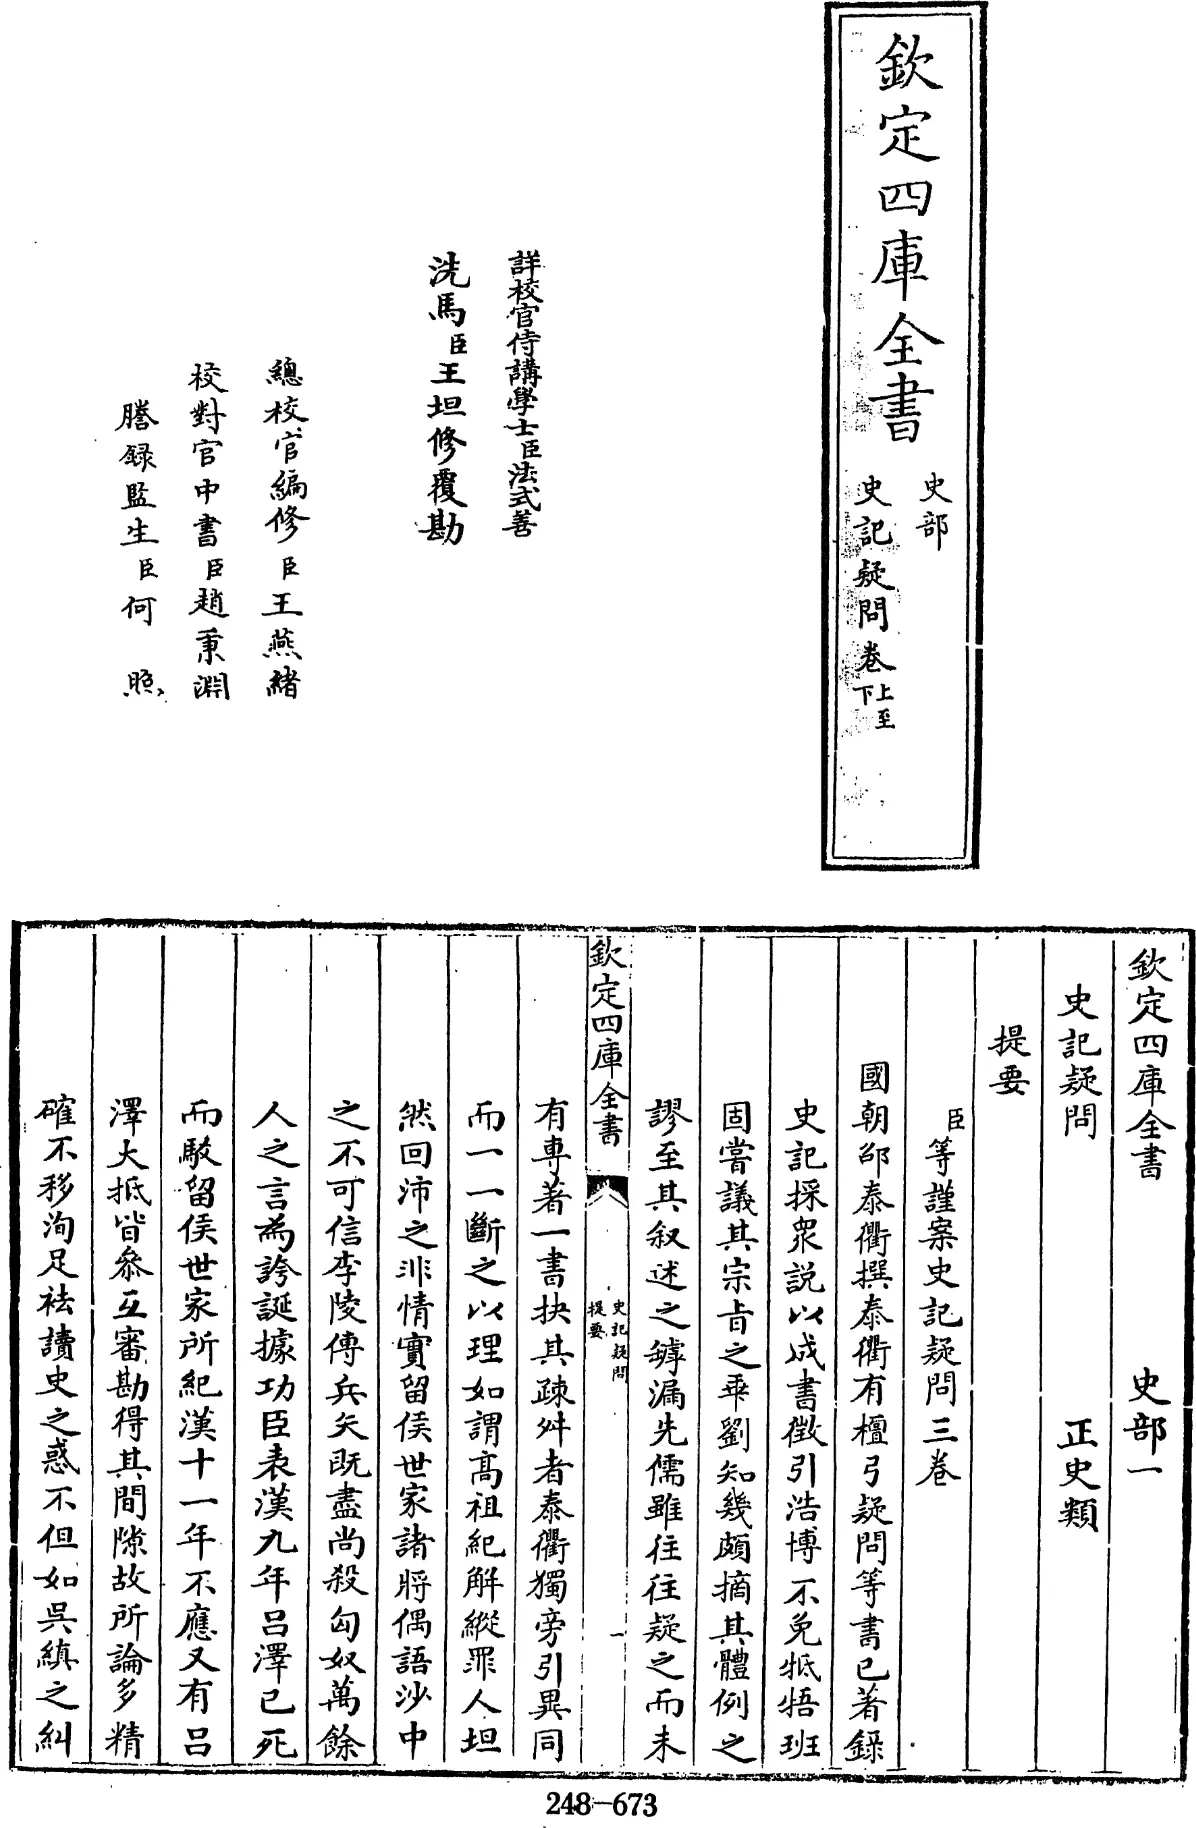 欽定四庫全書
史部
史記疑問卷上至下
詳校官侍講學士臣法式善
洗馬臣王坦修覆勘
總校官編修臣王燕緒
校對官中書臣趙秉淵
謄録監生臣何照
欽定四庫全書 史部一
史記疑問 正史類
提要
臣等謹案史記疑問三卷
國朝邵泰衢撰泰衢有檀弓疑問等書已著錄
史記採衆説以成書徵引浩博不免牴牾班
固嘗議其宗旨之乖劉知幾頗摘其體例之
謬至其叙述之罅漏先儒雖往往疑之而未
欽定四庫全書
史記疑問
提要
一
有專著一書抉其疎舛者泰衢獨旁引異同
而一一斷之以理如謂髙祖紀解縱罪人坦
然回沛之非情實留侯世家諸將偶語沙中
之不可信李陵傳兵矢既盡尚殺匈奴萬餘
人之言為誇誕據功臣表漢九年呂澤已死
而駁留侯世家所紀漢十一年不應又有呂
澤大抵皆叅互審勘得其間隙故所論多精
確不移洵足袪讀史之惑不但如吳縝之糾
248-673